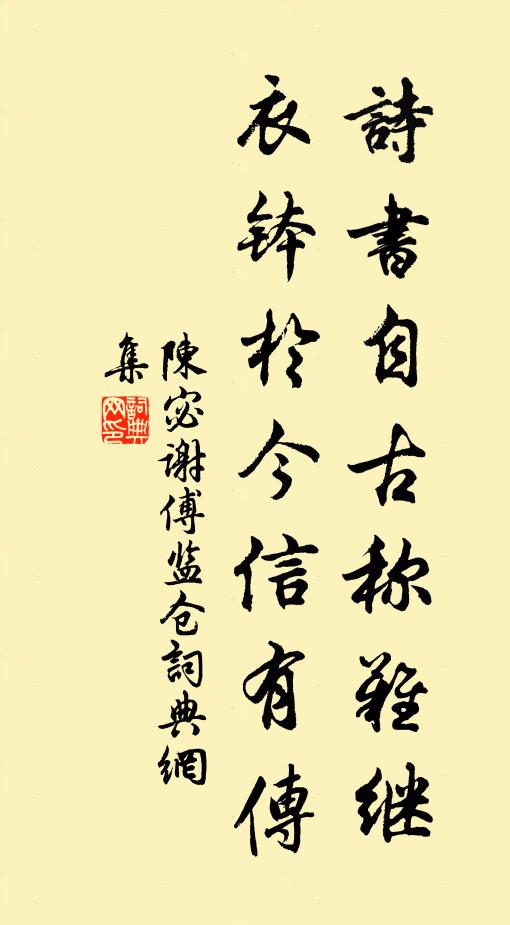 詩書自古称難継
衣鉢於今信有傳
陳宓谢傅监仓詞典網
集
詞典网印